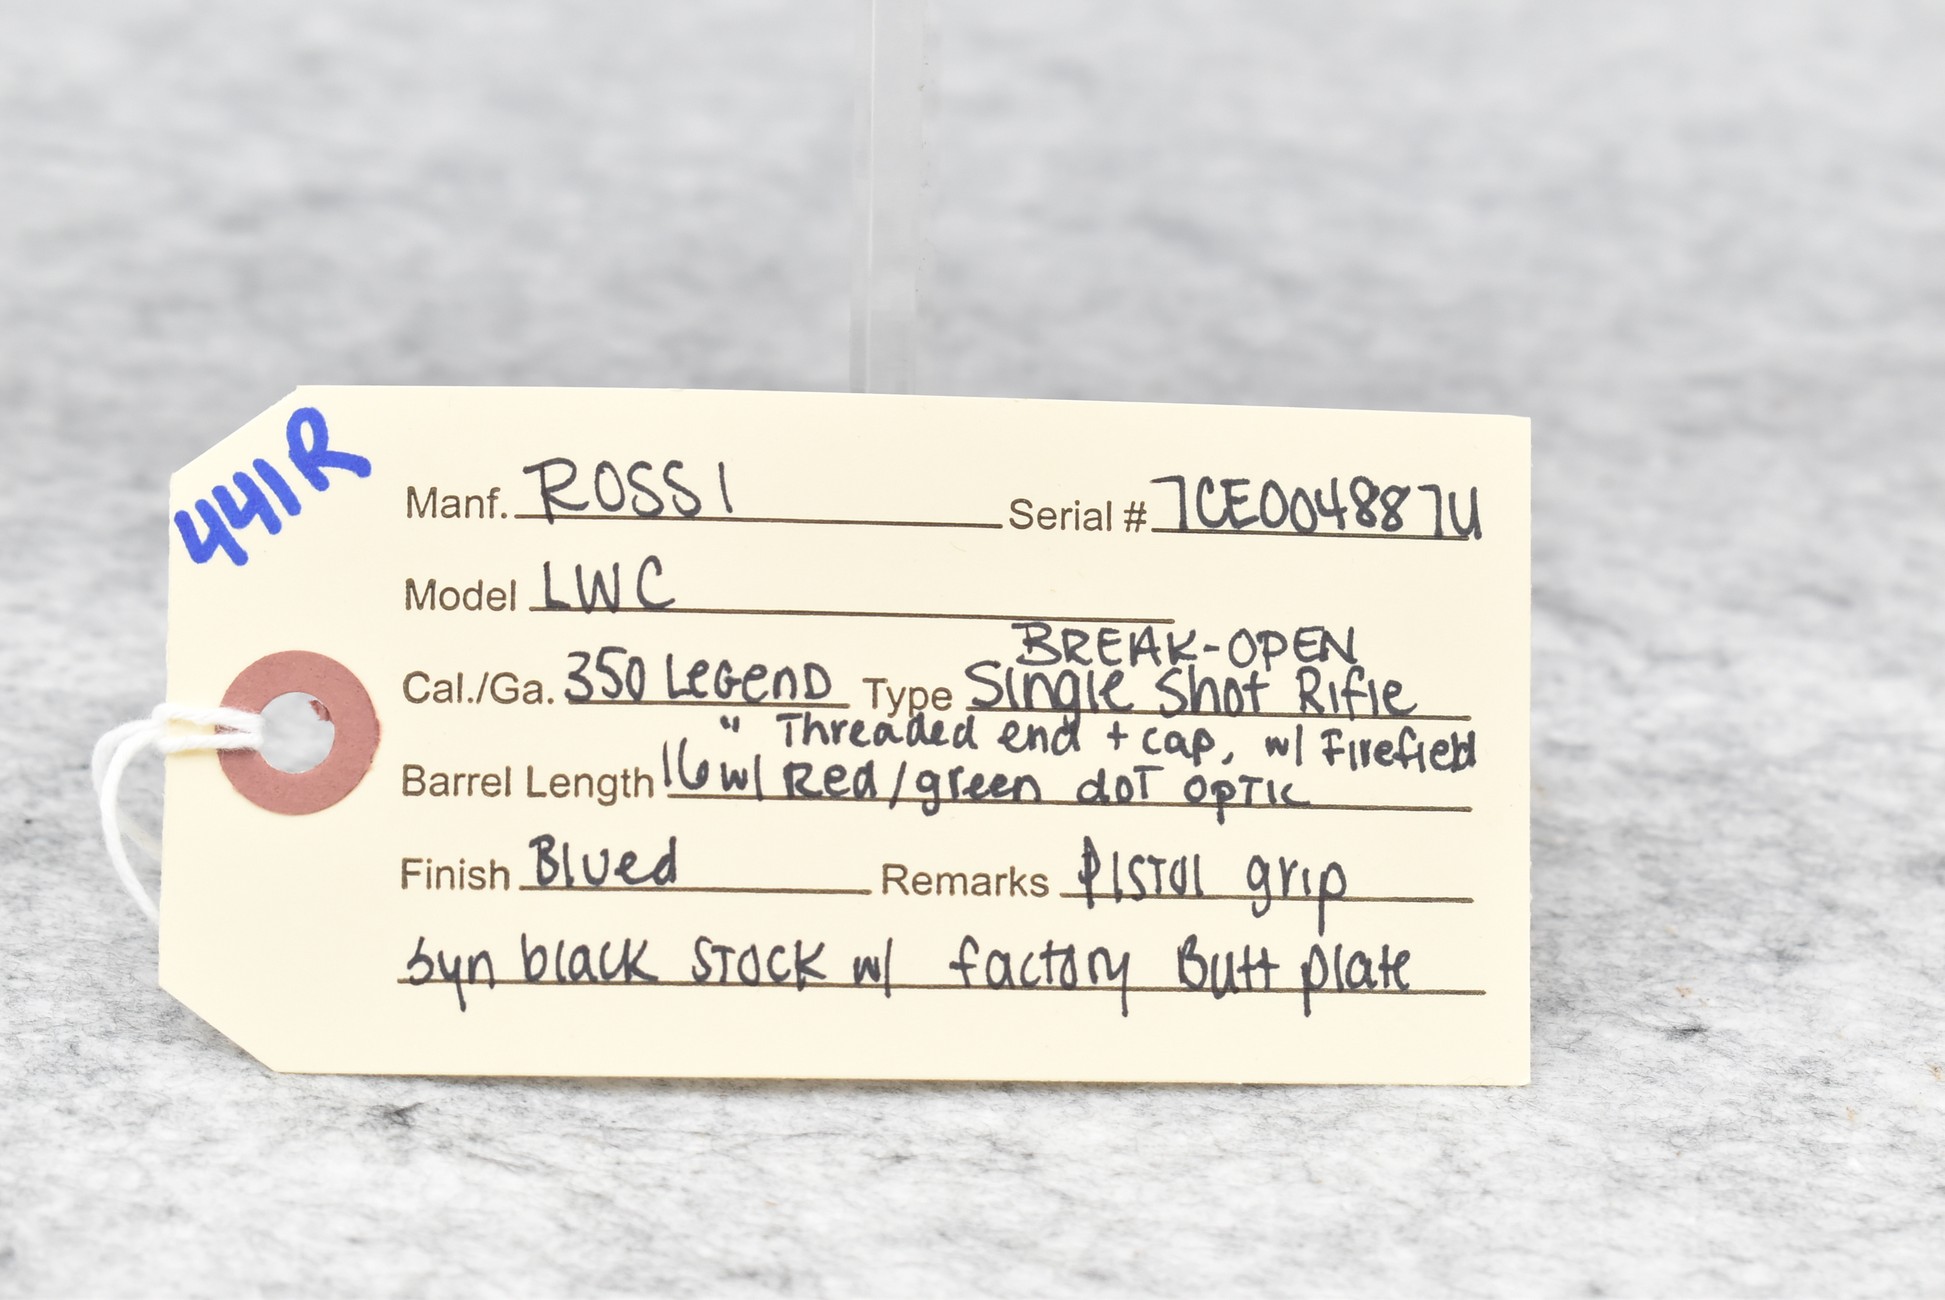 441R
Manf. ROSSI Serial # 7CE004887U
Model LWC
BREAK-OPEN
Cal./Ga. 350 LEGEND Type Single Shot Rifle
" Threaded end + cap, w/ Firefield
Barrel Length 16 w/ Red/green dot optic
Finish Blued Remarks Pistol grip
Syn black STOCK w/ factory Butt plate